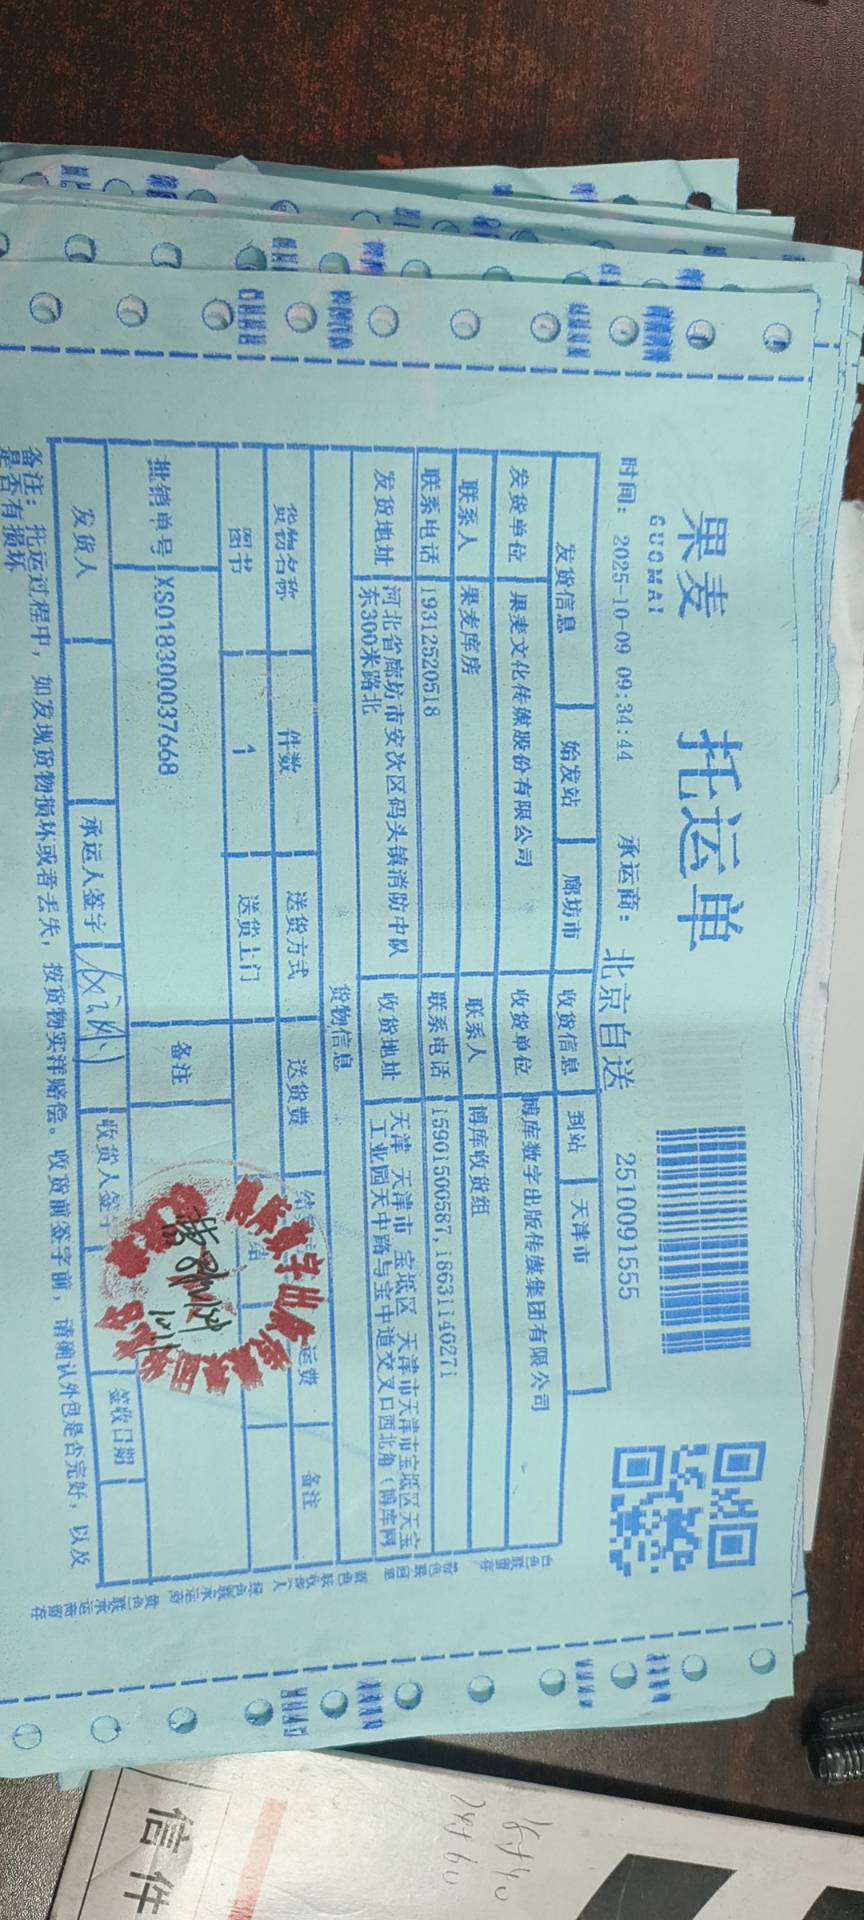 果麦
GUOMAI
托运单
时间: 2025-10-09 09:34:44
承运商: 北京自送
2510091555
发货信息 始发站 廊坊市 收货信息 到站 天津市
发货单位 果麦文化传媒股份有限公司 收货单位 博库数字出版传媒集团有限公司
联系人 果麦库房 联系人 博库收货组
联系电话 19312520518 联系电话 15901500587,18631140271
发货地址 河北省廊坊市安次区码头镇消防中队
东300米路北
收货地址 天津 天津市 宝坻区 天津市天津市宝坻区天宝
工业园天中路与宝中道交叉口西北角(博库网
货物信息
货物名称 件数 送货方式 送货费 运费 备注
图书 1 送货上门
批销单号 XS018300037668 备注
发货人 承运人签字 收货人签字 签收日期
备注: 托运过程中, 如发现货物损坏或者丢失, 按货物实洋赔偿。收货前签字前, 请确认外包是否完好, 以及
是否有损坏
信件